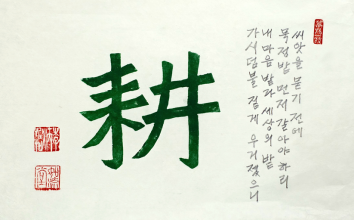 耕
씨앗을 묻기 전에
묵정밭 먼저 갈아야 하리
내 마음 밭과 세상의 밭
가시덤불 짙게 우거졌으니